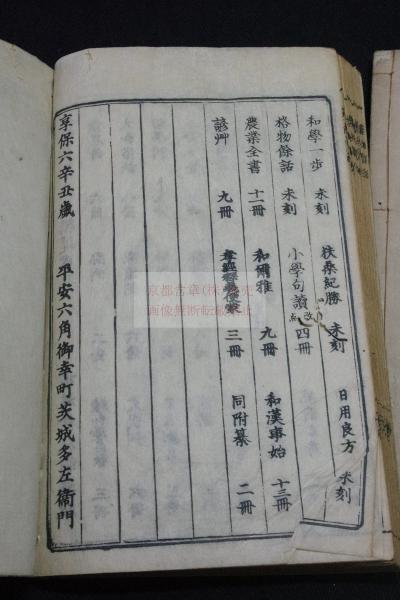 和學一步 未刻 扶桑紀勝 未刻 日用良方 未刻
格物餘話 未刻 小學句讀 改点 四冊
農業全書 十一冊 和爾雅 九冊 和漢事始 十三冊
諺艸 九冊 三冊 同附纂 二冊
享保六辛丑歲 平安六角御幸町茨城多左衞門
京都古章(株)
画像無断転